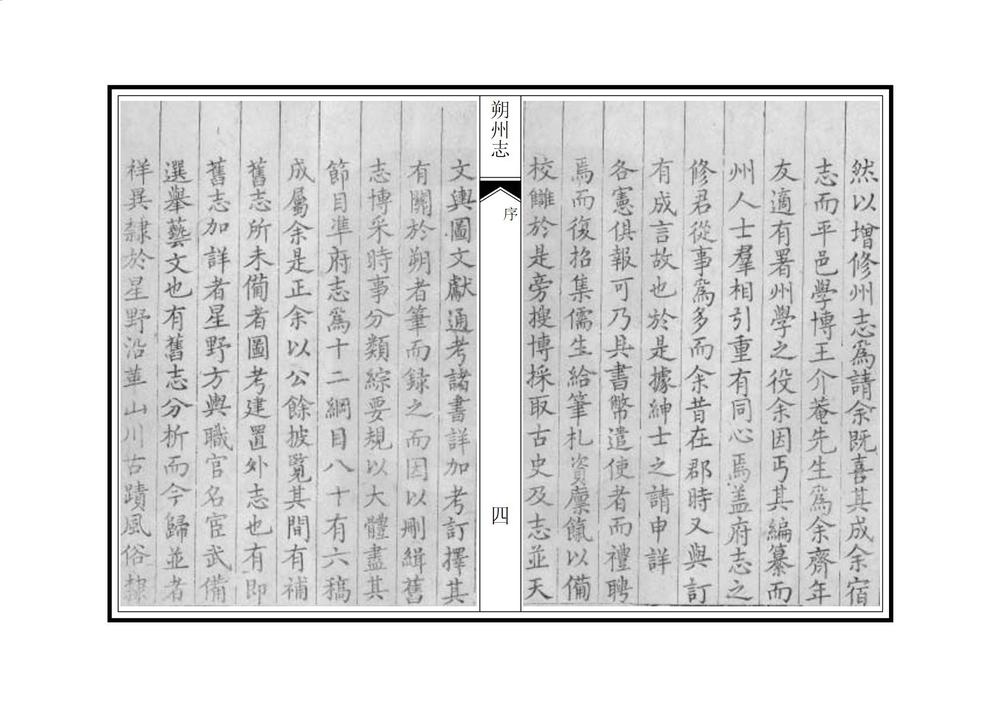 然以增修州志爲請余既喜其成余宿
志而平邑學博王介菴先生爲余齊年
友適有署州學之役余因丐其編纂而
州人士羣相引重有同心焉盖府志之
修君從事爲多而余昔在郡時又與訂
有成言故也於是據紳士之請申詳
各憲俱報可乃具書幣遣使者而禮聘
焉而復招集儒生給筆札資廩餼以備
校讎於是旁搜博採取古史及志並天
朔州志
序
四
文輿圖文獻通考諸書詳加考訂擇其
有關於朔者筆而録之而因以刪緝舊
志博采時事分類綜要規以大體盡其
節目準府志爲十二綱目八十有六稿
成屬余是正余以公餘披覧其間有補
舊志所未備者圖考建置外志也有即
舊志加詳者星野方輿職官名宦武備
選舉藝文也有舊志分析而今歸並者
祥異隸於星野沿革山川古蹟風俗隸